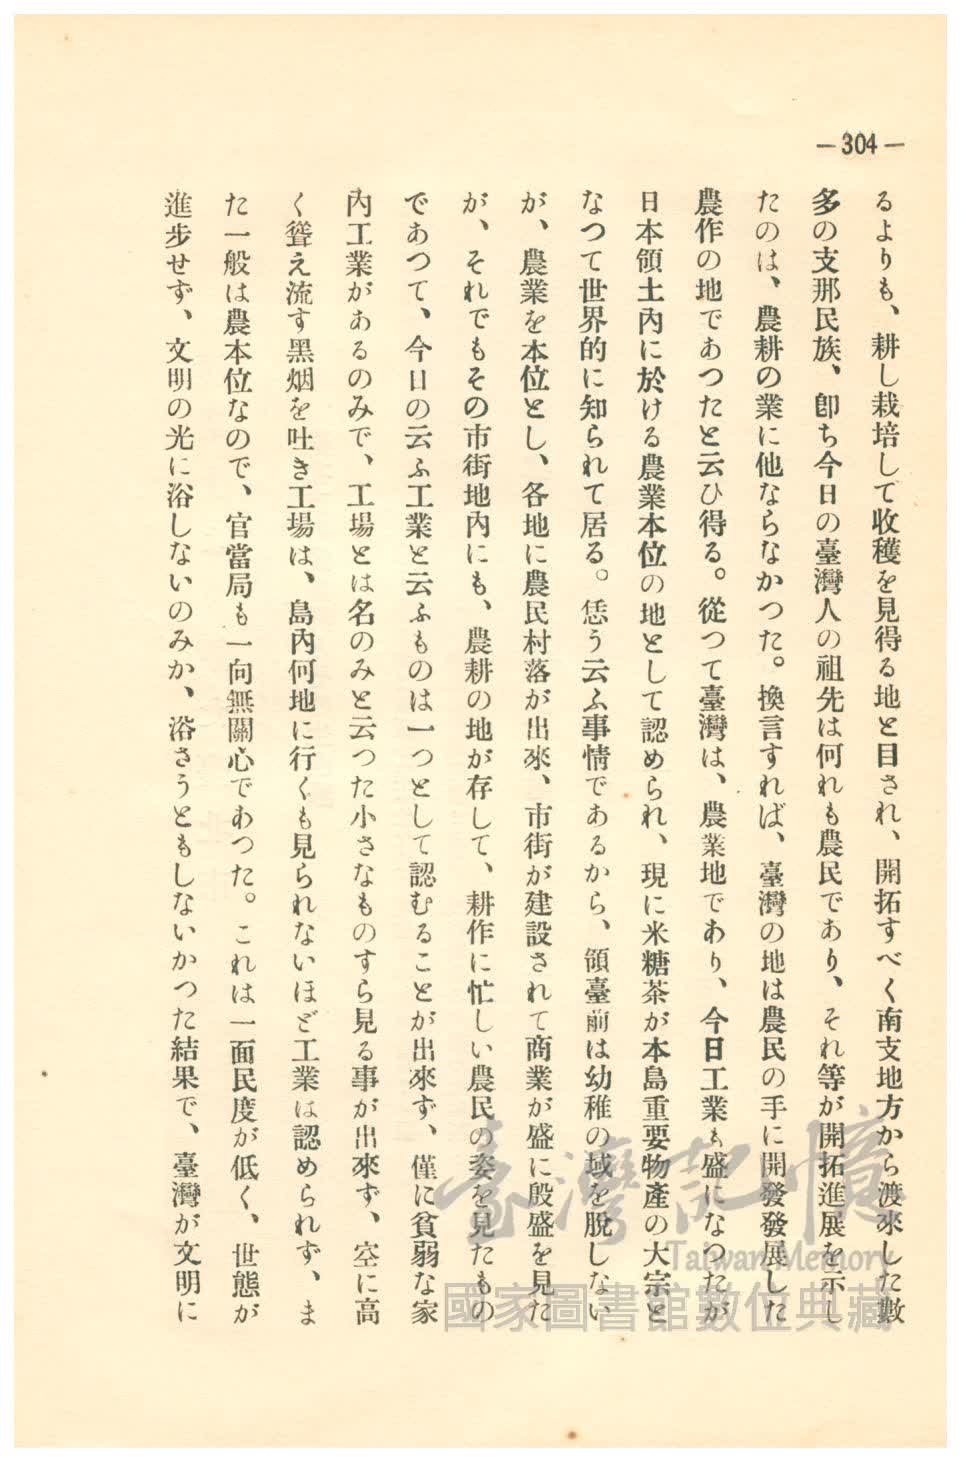 —304—
るよりも、耕し栽培して收穫を見得る地と目され、開拓すべく南支地方から渡來した數
多の支那民族、卽ち今日の臺灣人の祖先は何れも農民であり、それ等が開拓進展を示し
たのは、農耕の業に他ならなかつた。換言すれば、臺灣の地は農民の手に開發發展した
農作の地であつたと云ひ得る。從つて臺灣は、農業地であり、今日工業も盛になつたが
日本領土內に於ける農業本位の地として認められ、現に米糖茶が本島重要物產の大宗と
なつて世界的に知られて居る。恁う云ふ事情であるから、領臺前は幼稚の域を脫しない
が、農業を本位とし、各地に農民村落が出來、市街が建設されて商業が盛に殷盛を見た
が、それでもその市街地內にも、農耕の地が存して、耕作に忙しい農民の姿を見たもの
であつて、今日の云ふ工業と云ふものは一つとして認むることが出來ず、僅に貧弱な家
內工業があるのみで、工場とは名のみと云つた小さなものすら見る事が出來ず、空に高
く聳え流す黑烟を吐き工場は、島內何地に行くも見られないほど工業は認められず、ま
た一般は農本位なので、官當局も一向無關心であつた。これは一面民度が低く、世態が
進步せず、文明の光に浴しないのみか、浴さうともしないかつた結果で、臺灣が文明に
臺灣記憶
Taiwan Memory
國家圖書館數位典藏